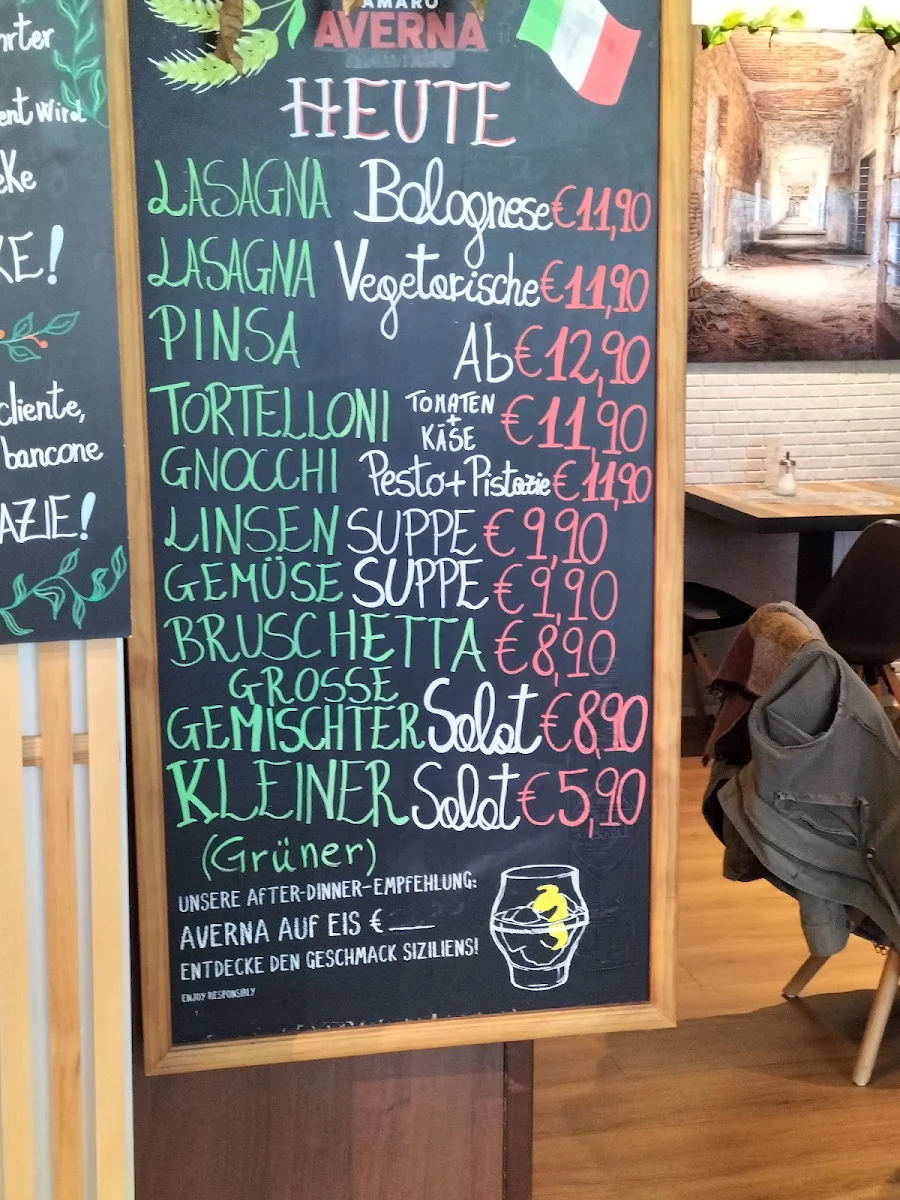 ent wird
KE!
cliente,
bancone
AZIE!
AMARO
AVERNA
HEUTE
LASAGNA Bolognese €11,90
LASAGNA Vegetarische €11,90
PINSA Ab €12,90
TORTELLONI TOMATEN + KÄSE €11,90
GNOCCHI Pesto + Pistazie €11,90
LINSEN SUPPE €9,90
GEMÜSE SUPPE €9,90
BRUSCHETTA €8,90
GROSSE
GEMISCHTER Salat €8,90
KLEINER Salat €5,90
(Grüner)
UNSERE AFTER-DINNER-EMPFEHLUNG:
AVERNA AUF EIS €___
ENTDECKE DEN GESCHMACK SIZILIENS!
ENJOY RESPONSIBLY